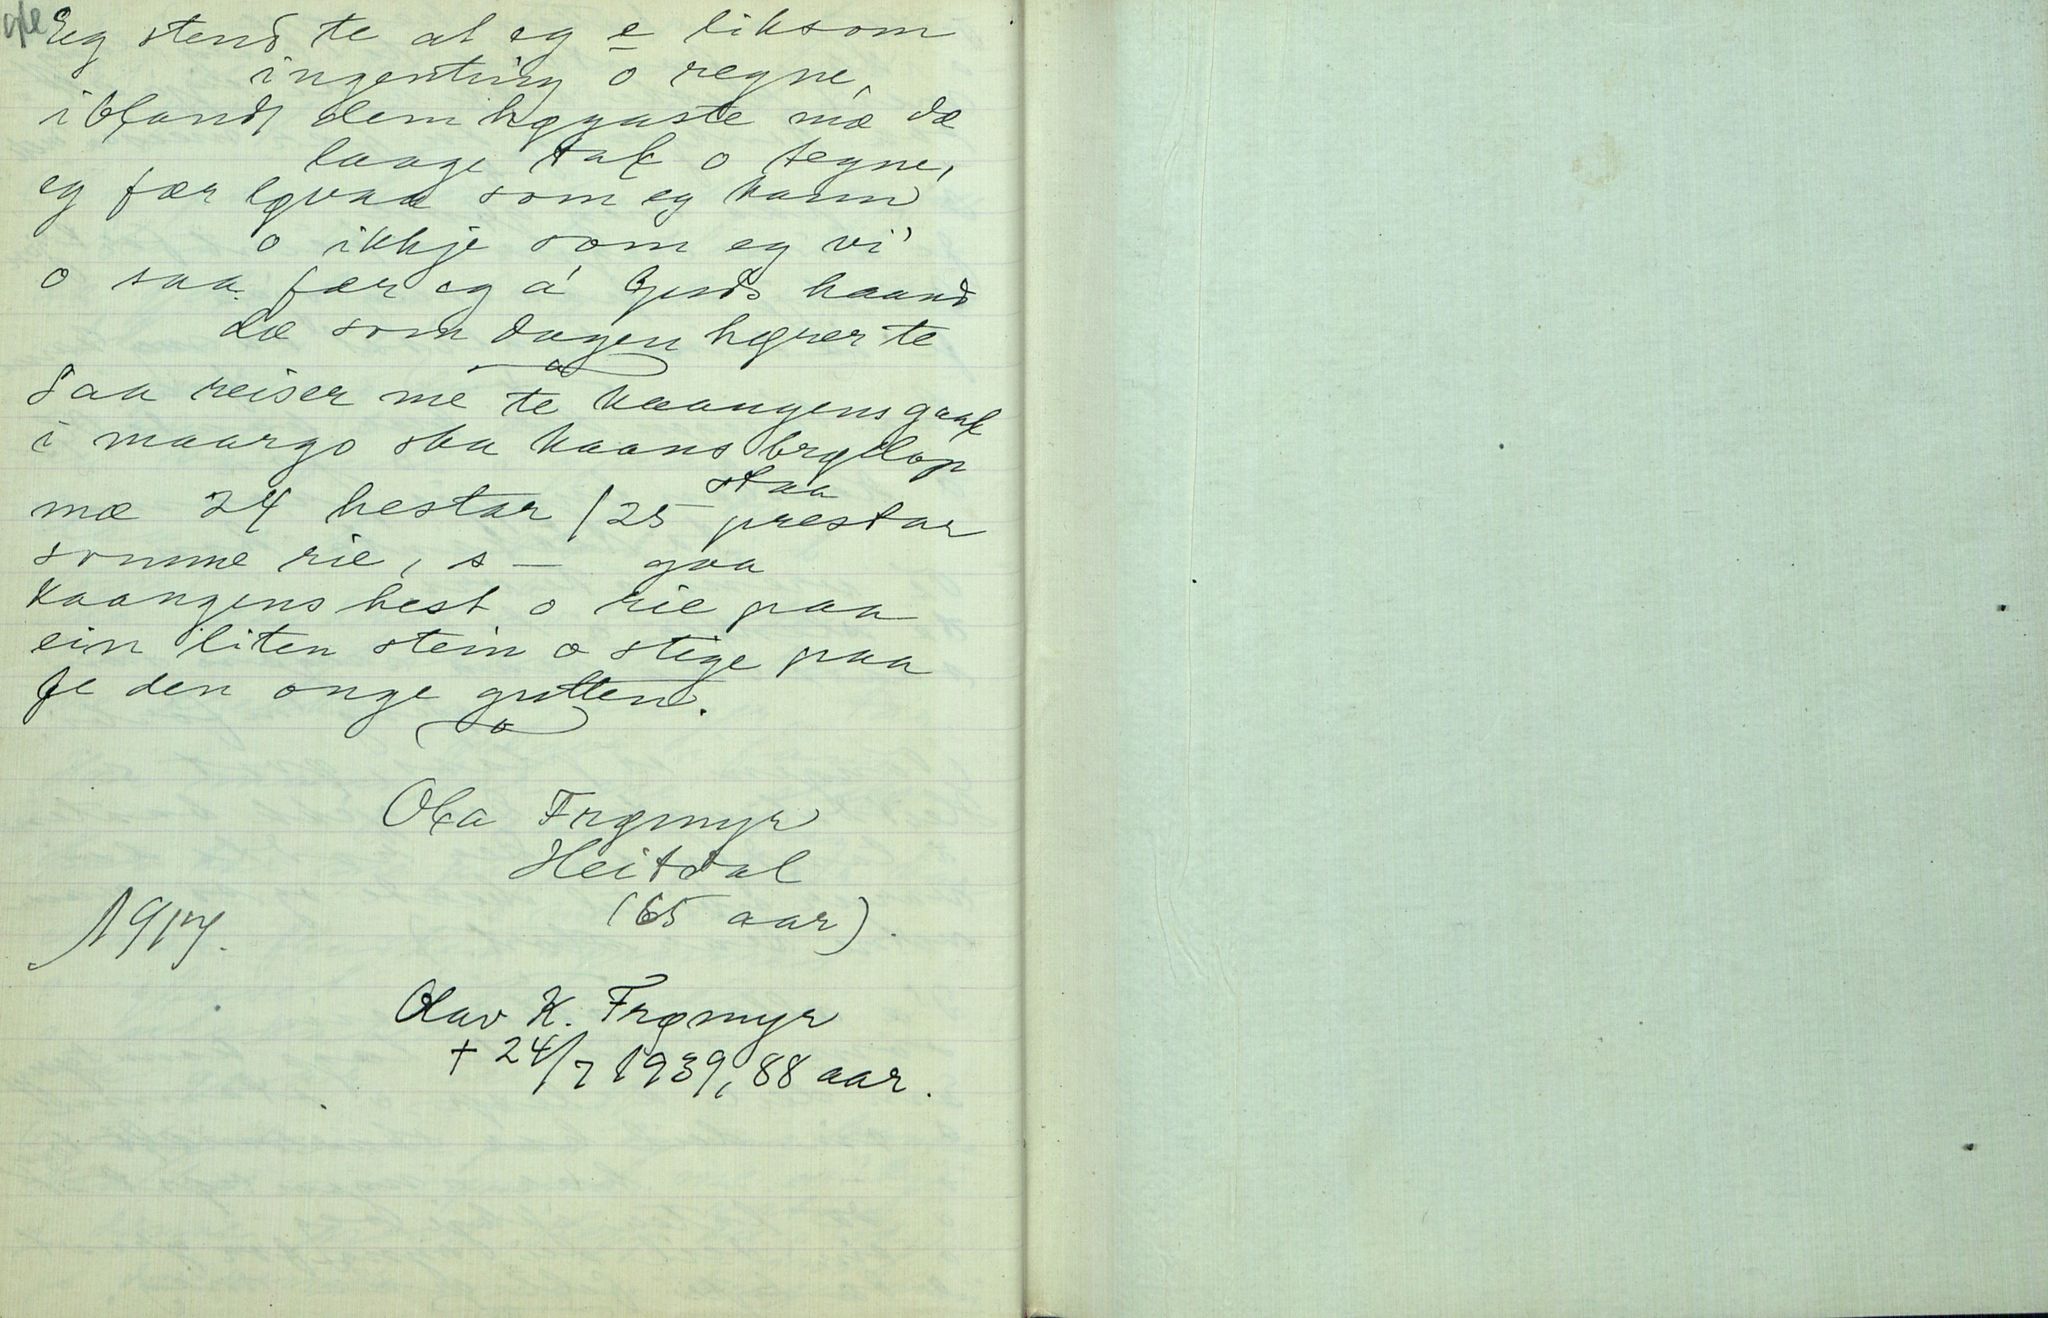 Eg stend te at eg e liksom
ingenting o regne,
iblandt dem høgaste mæ dæ
laage tal o tegne,
eg fær løvaa som eg kann
o ikkje som eg vi'
o saa fær eg á Guds haand
dæ som dagen hører te
Saa reiser me te kaangens gaal
i maargo ska kaans brøllop
staa
mæ 24 hestar / 25 prestar
somme rie, s — gaa
kaangens hest o rie paa
ein liten stein o stige paa
fe den onge gutten.
Ola Frømyr
Heitdal
(65 aar).
1917.
Olav K. Frømyr
+ 24/7 1939, 88 aar.